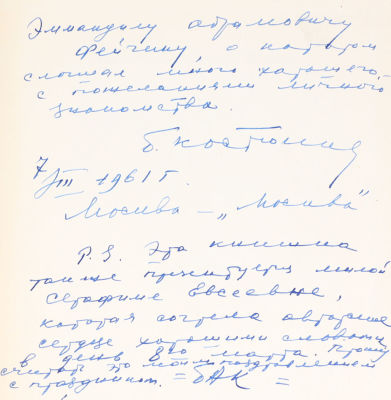 Эммануилу Абрамовичу
Фейгину о котором
слышал много хорошего,
с пожеланиями личного
знакомства.
Б. Костюков
7/III 1961 г.
Москва – „Москва"
P.S. Эта книжка
также презентуется милой
Серафиме Евсеевне,
которая согрела авторское
сердце хорошими словами
в день 8го марта. Прошу
считать это моим поздравлением
с праздником. = БАК =